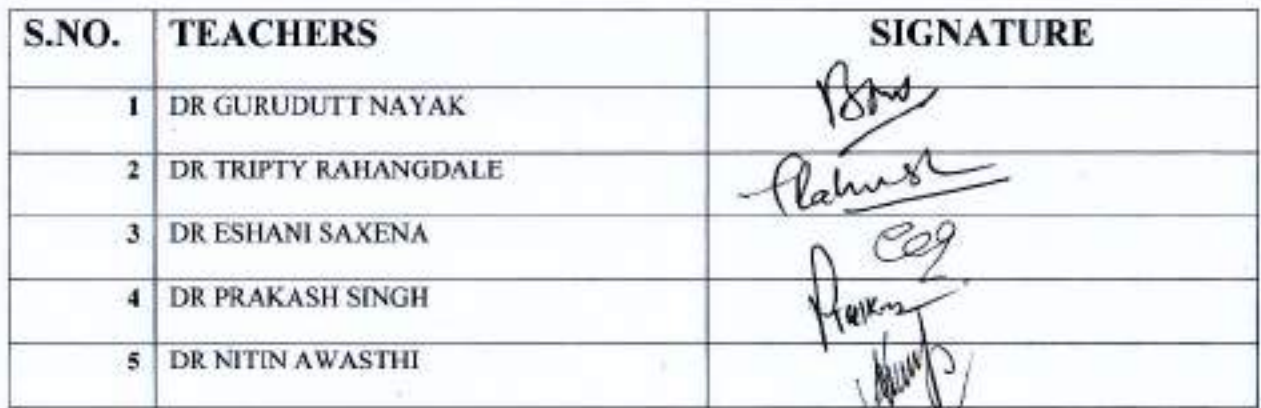 S.NO. TEACHERS SIGNATURE
1 DR GURUDUTT NAYAK
2 DR TRIPTY RAHANGDALE
3 DR ESHANI SAXENA
4 DR PRAKASH SINGH
5 DR NITIN AWASTHI